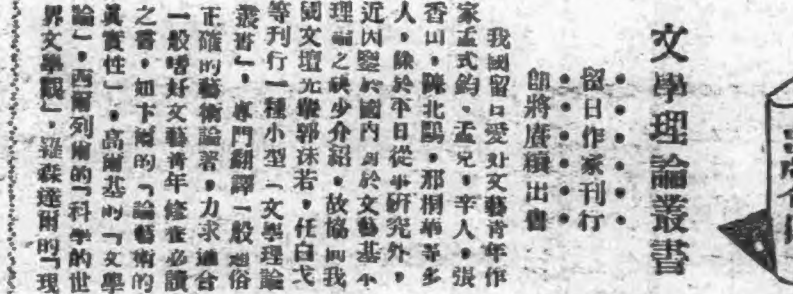 文學理論叢書
留日作家刊行
即將賡續出書
我國留日愛好文藝青年作
家孟式鈞、孟克、辛人、張
香山、陳北鷗、邢桐華等多
人,除於平日從事研究外,
近因鑒於國內對於文藝基本
理論之缺少介紹,故協同我
國文壇先輩郭沫若、任白戈
等刊行一種小型「文學理論
叢書」,專門翻譯一般通俗
正確的藝術論著,力求適合
一般嗜好文藝青年修養必讀
之書,如下爾的「論藝術的
眞實性」,高爾基的「文學
論」,西爾列爾的「科學的世
界文學觀」,羅森達爾的「現